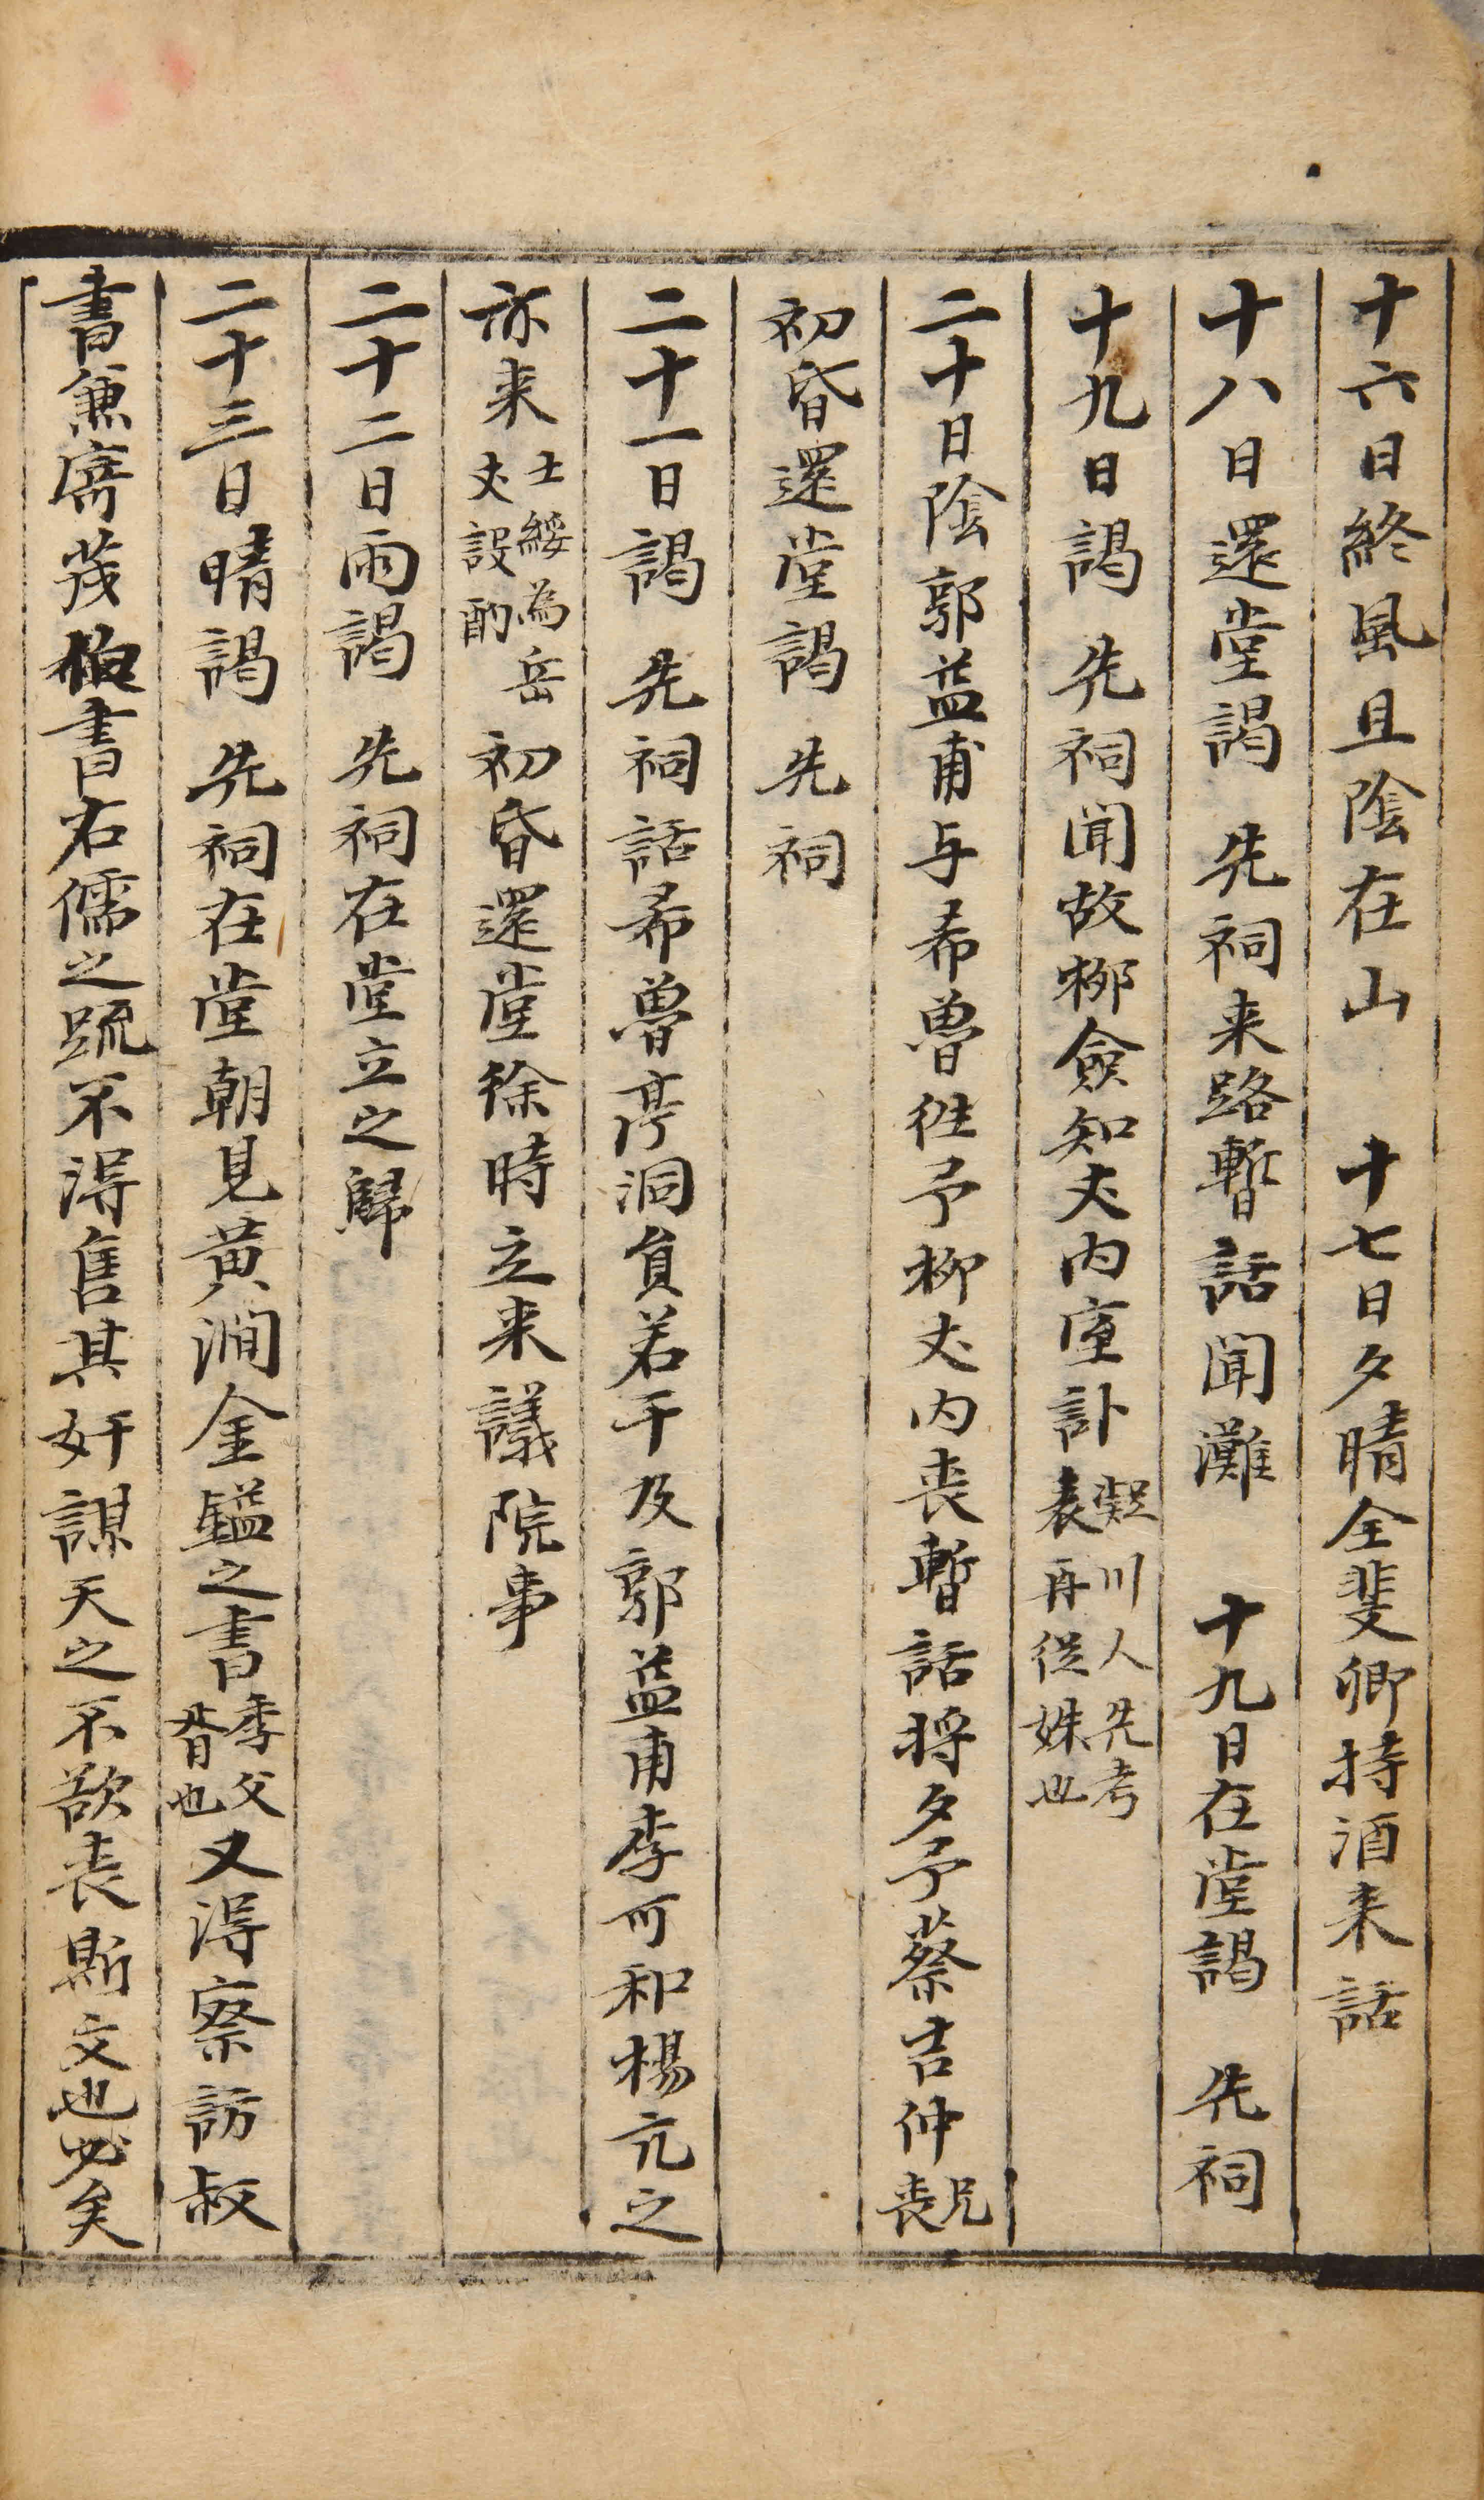 十六日終風且陰在山 十七日夕晴全斐卿持酒来話
十八日還堂謁 先祠来路暫話聞灘 十九日在堂謁 先祠
十九日謁 先祠聞故柳僉知丈内室訃
川人先考
表再從姝也
二十日陰郭益甫与希魯徃予柳丈内喪暫話将夕予蔡吉仲
兄
喪
初昏還堂謁 先祠
二十一日謁 先祠話希魯亭洞負若干及郭益甫李可和楊亢之
亦来
士綏為岳
丈設酌
初昏還堂徐時立来議院事
二十二日雨謁 先祠在堂立之歸
二十三日晴謁 先祠在堂朝見黄澗金鎰之書
季父
胥也
又淂察訪叔
書兼寄茂伯書右儒之䟽不淂售其奸謀天之不欲丧斯文也必矣